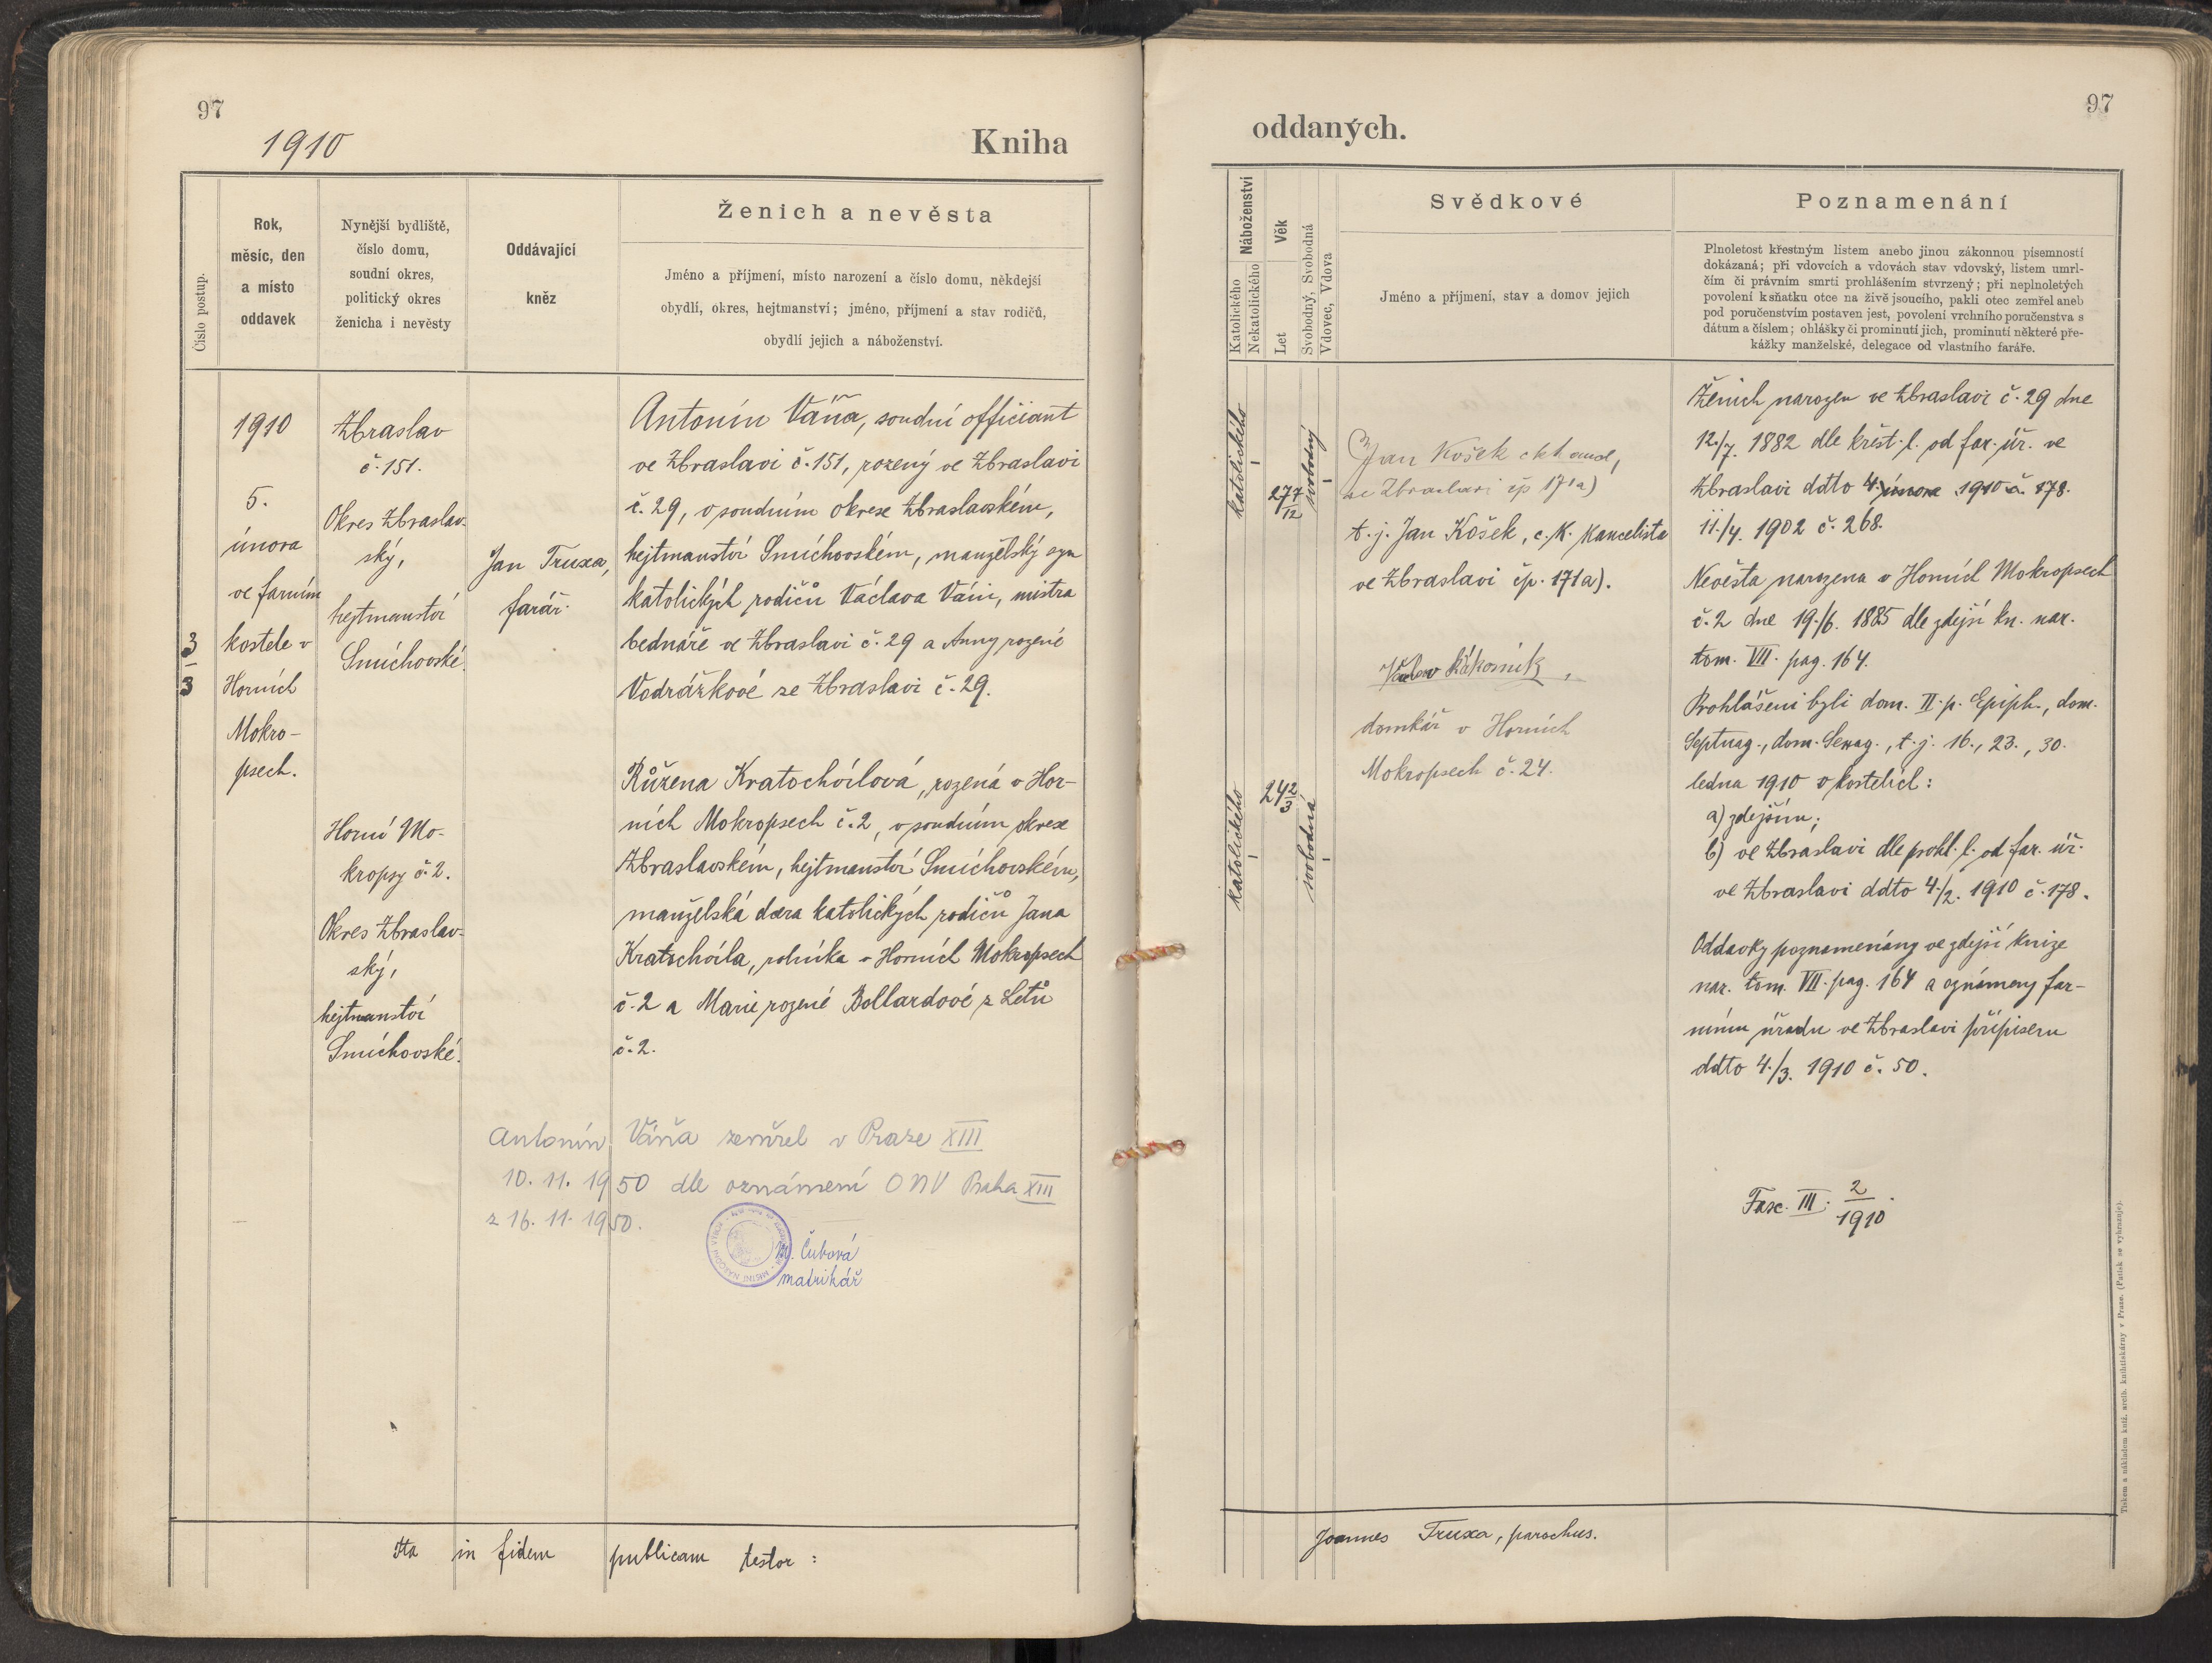 97
1910
Kniha
Číslo postup.
Rok,
měsíc, den
a místo
oddavek
Nynější bydliště,
číslo domu,
soudní okres,
politický okres
ženicha i nevěsty
Oddávající
kněz
Ženich a nevěsta
Jméno a příjmení, místo narození a číslo domu, někdejší
obydlí, okres, hejtmanství; jméno, příjmení a stav rodičů,
obydlí jejich a náboženství.
3
3
1910
5.
února
ve farním
kostele v
Horních
Mokro-
psech.
Zbraslav
č. 151.
Okres Zbraslav-
ský,
hejtmanství
Smíchovské.
Horní Mo-
kropsy č. 2.
Okres Zbraslav-
ský,
hejtmanství
Smíchovské.
Jan Truxa,
farář.
Antonín Váňa, soudní officiant
ve Zbraslavi č. 151, rozený ve Zbraslavi
č. 29, v soudním okrese Zbraslavském,
hejtmanství Smíchovském, manželský syn
katolických rodičů Václava Váni, mistra
bednáře ve Zbraslavi č. 29 a Anny rozené
Vodrážkové ze Zbraslavi č. 29.
Růžena Kratochvílová, rozená v Hor-
ních Mokropsech č. 2, v soudním okrese
Zbraslavském, hejtmanství Smíchovském,
manželská dcera katolických rodičů Jana
Kratochvíla, rolníka v Horních Mokropsech
č. 2 a Marie rozené Bollardové z Letů
č. 2.
Antonín Váňa zemřel v Praze XIII
10. 11. 1950 dle oznámení ONV Praha XIII
z 16. 11. 1950.
Čubová
matrikář
Ita in fidem publicam testor :
97
oddaných.
Náboženství
Katolického
Nekatolického
Věk
Let
Svobodný, Svobodná
Vdovec, Vdova
Svědkové
Jméno a příjmení, stav a domov jejich
Poznamenání
Plnoletost křestným listem anebo jinou zákonnou písemností
dokázaná; při vdovcích a vdovách stav vdovský, listem umrl-
čím či právním smrti prohlášením stvrzený; při neplnoletých
povolení k sňatku otce na živě jsoucího, pakli otec zemřel aneb
pod poručenstvím postaven jest, povolení vrchního poručenstva s
dátum a číslem; ohlášky či prominutí jich, prominutí některé pře-
kážky manželské, delegace od vlastního faráře.
katolického
27 7/12
svobodný
katolického
24 2/3
svobodná
Jan Košek
ve Zbraslavi čp 171a)
t. j. Jan Košek, c. k. kancelista
ve Zbraslavi čp. 171a).
Václav Rákosník,
domkář v Horních
Mokropsech č. 24.
Ženich narozen ve Zbraslavi č. 29 dne
12./7. 1882 dle křest. l. od far. úř. ve
Zbraslavi ddto 4. února 1910 č. 178.
11./4. 1902 č. 268.
Nevěsta narozena v Horních Mokropsech
č. 2 dne 19./6. 1885 dle zdejší kn. nar.
tom. VII. pag. 164.
Prohlášeni byli dom. II. p. Epiph., dom.
Septuag., dom. Sexag., t. j. 16., 23., 30.
ledna 1910 v kostelích :
a) zdejším;
b) ve Zbraslavi dle prohl. l. od far. úř.
ve Zbraslavi ddto 4./2. 1910 č. 178.
Oddavky poznamenány ve zdejší knize
nar. tom. VII. pag. 164 a oznámeny far-
nímu úřadu ve Zbraslavi přípisem
ddto 4./3. 1910 č. 50.
Fasc. III. 2/1910.
Joannes Truxa, parochus.
Tiskem a nákladem kníž. arcib. knihtiskárny v Praze. (Patisk se vyhrazuje).